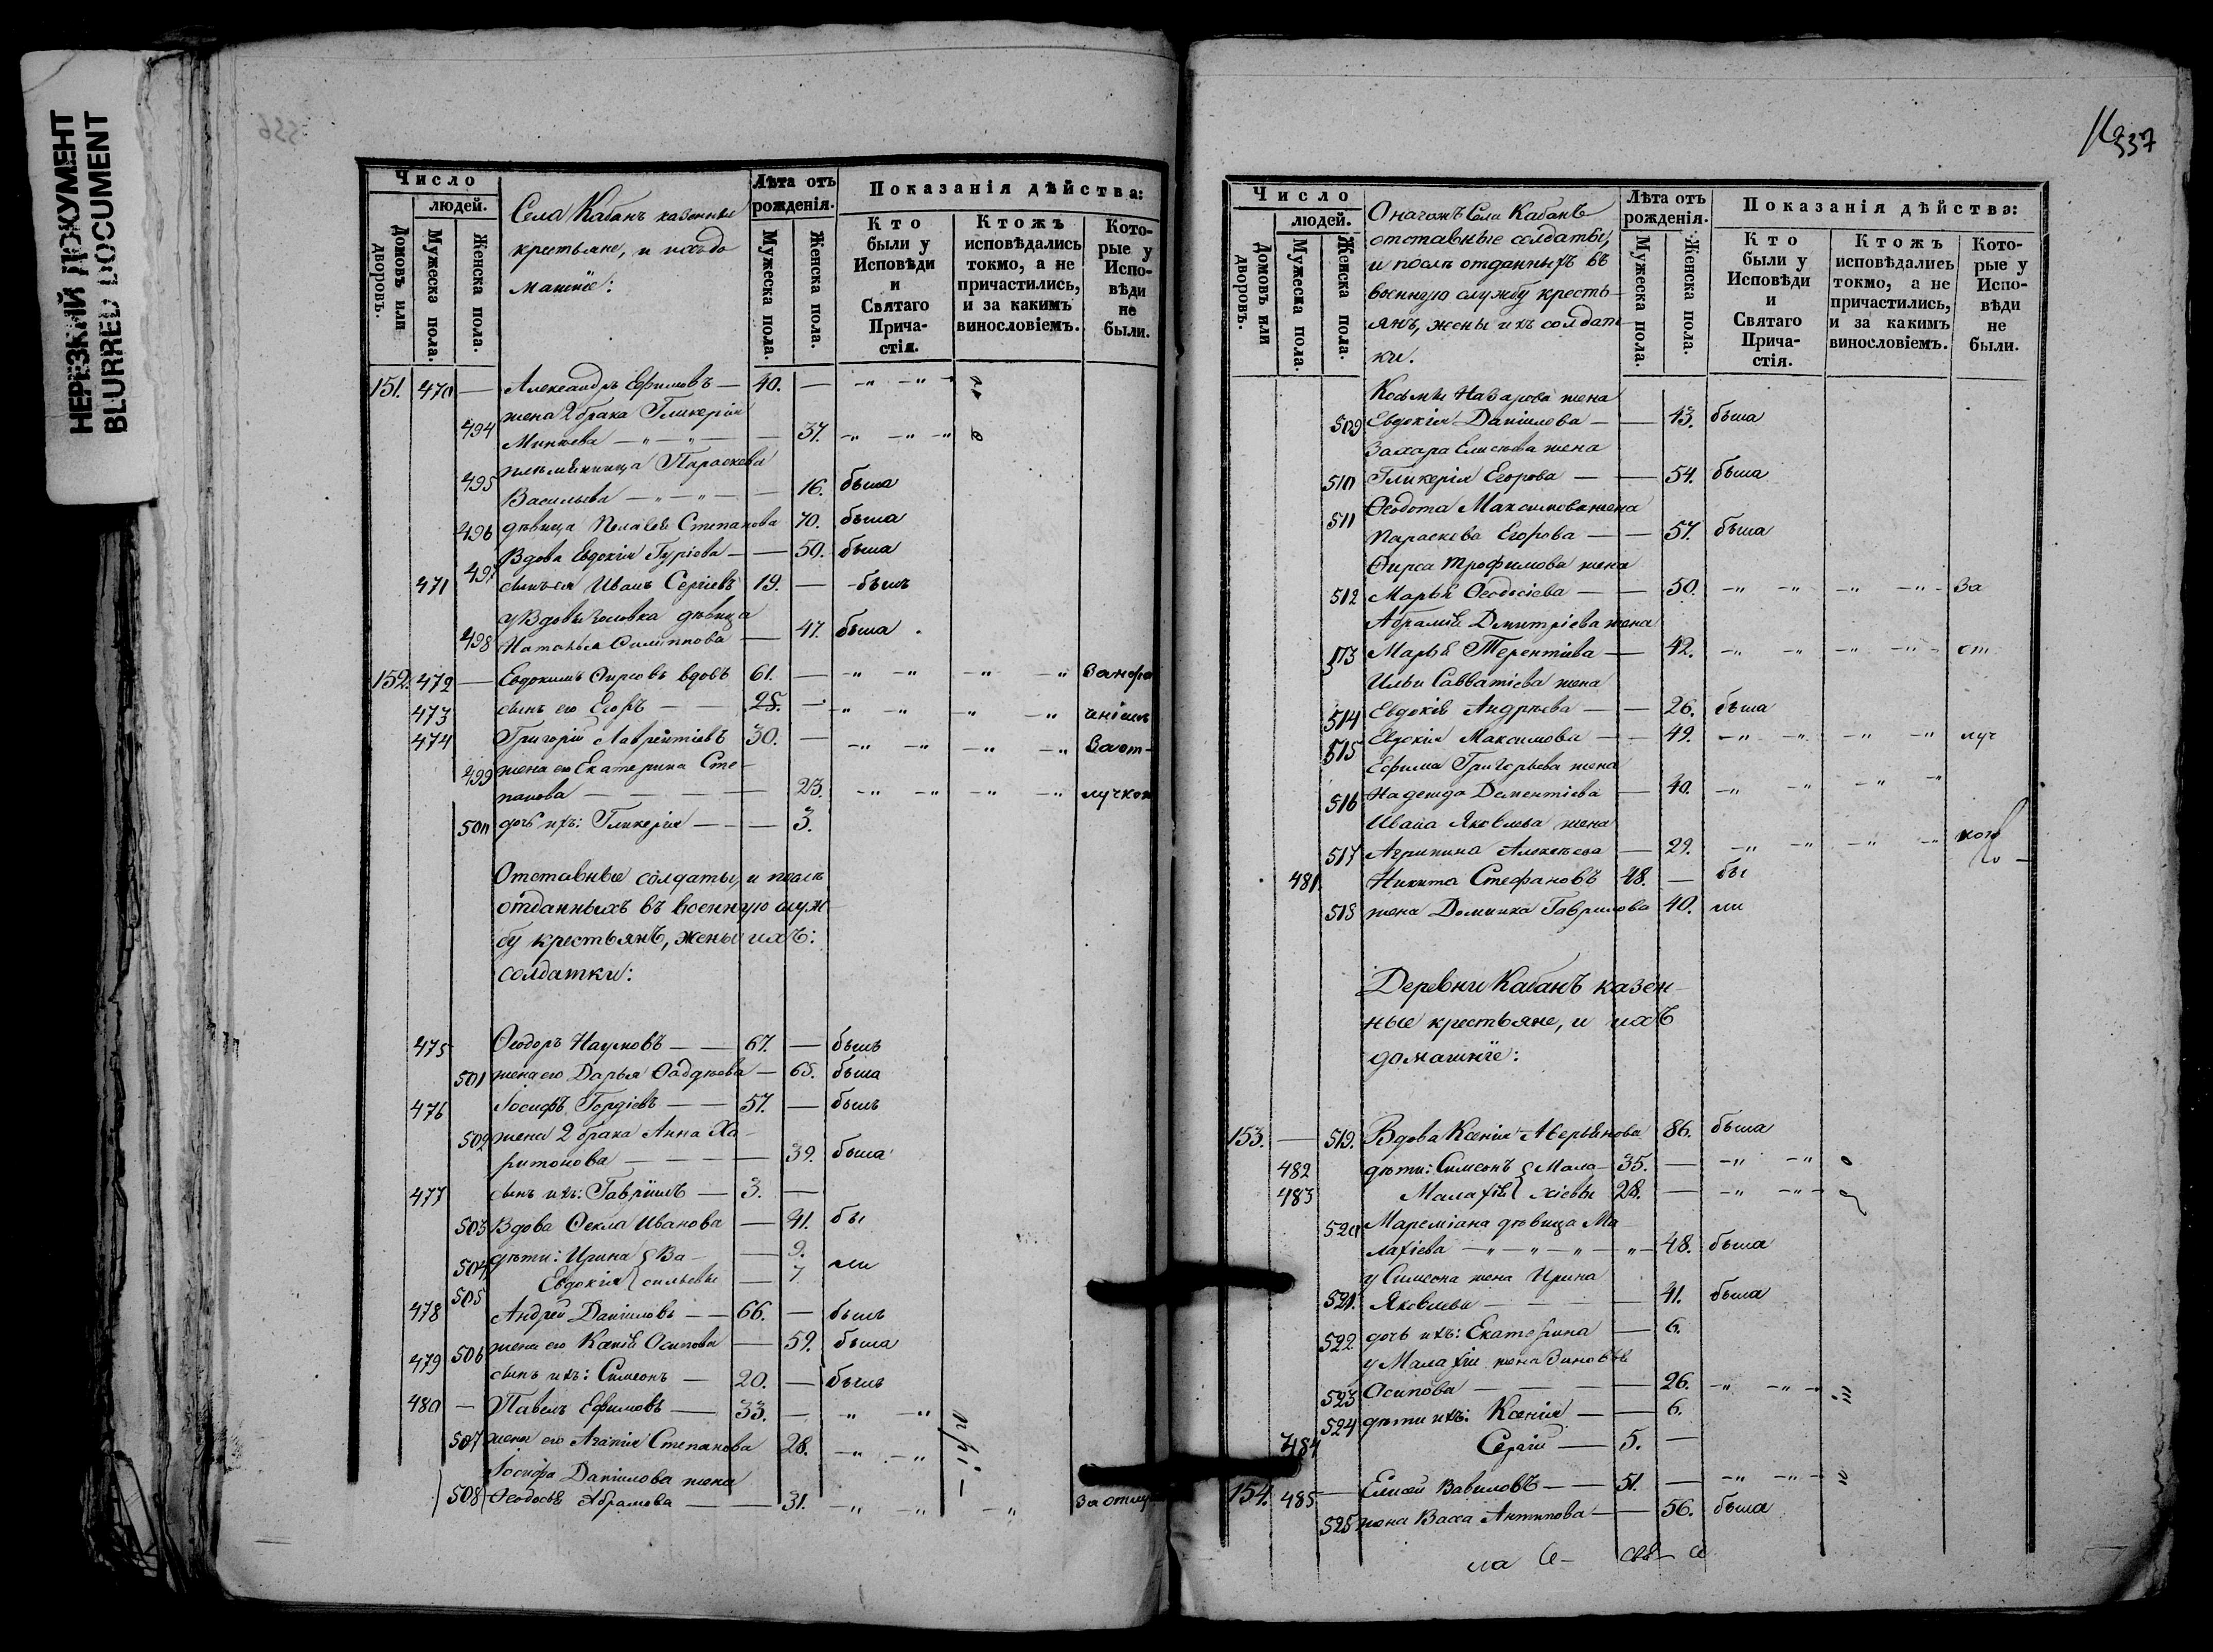 НЕРЕЗКИЙ ДОКУМЕНТ
BLURRED DOCUMENT
336
Число
людей.
Домовъ или дворовъ.
Мужеска пола.
Женска пола.
Села Кабанъ казенные
крестьяне, и ихъ до
машніе:
Лѣта отъ рожденія.
Мужеска пола.
Женска пола.
Показанія дѣйства:
Кто были у Исповѣди и Святаго Прича-стія.
Ктожъ исповѣдались токмо, а не причастились, и за какимъ винословіемъ.
Кото-рые у Испо-вѣди не были.
151. 470 — Александръ Ефимовъ — 40. —
жена 2 брака Гликерія
494 Минѣева — 37.
племянница Параскева
495 Васильева — 16. была
496 дѣвица Пелагея Степанова 70. была
497 Вдова Евдокія Гуріева — 50. была
471 сынъ ея Иванъ Сергіевъ 19. — былъ
у Вдовы золовка дѣвица
498 Наталья Филиппова — 47. была
152. 472 — Евдокимъ Ѳирсовъ вдовъ 61. —
473 сынъ его Егоръ — 25. —
474 Григорій Лаврентіевъ 30. — За от-
499 жена его Екатерина Сте-
панова — 23. лучкою
500 дочь ихъ: Гликерія — 3.
Отставные солдаты, и послѣ
отданныхъ въ военную служ
бу крестьянъ, жены ихъ:
солдатки:
475 Ѳеодоръ Наумовъ — 67. — былъ
501 жена его Дарья Ѳаддѣева — 65. была
476 Іосифъ Гордіевъ — 57. — былъ
502 жена 2 брака Анна Ха-
ритонова — 39. была
477 сынъ ихъ: Гавріилъ — 3. —
503 Вдова Ѳекла Иванова — 41. бы
504 дѣти: Ирина } Ва- — 9. ли
505 Евдокія } сильевы — 7
478 Андрей Даніиловъ — 66. — былъ
506 жена его Ксенія Осипова — 59. была
479 сынъ ихъ: Симеонъ — 20. — былъ
480 — Павелъ Ефимовъ — 33. —
507 жена его Агапія Степанова 28.
Іосифа Даніилова жена
508 Ѳеодосья Абрамова — 31. За отлу
337
Число
людей.
Домовъ или дворовъ.
Мужеска пола.
Женска пола.
Оначожъ Села Кабанъ
отставные солдаты,
и послѣ отданныхъ въ
военную службу кресть-
янъ, жены ихъ солдат-
ки.
Лѣта отъ рожденія.
Мужеска пола.
Женска пола.
Показанія дѣйства:
Кто были у Исповѣди и Святаго Прича-стія.
Ктожъ исповѣдались токмо, а не причастились, и за какимъ винословіемъ.
Кото-рые у Испо-вѣди не были.
Козьмы Назарова жена
509 Евдокія Даніилова — 43. была
Захара Елисѣева жена
510 Гликерія Егорова — 54. была
Ѳеодота Максимова жена
511 Параскева Егорова — 57. была
Ѳирса Трофимова жена
512 Марья Ѳеодосіева — 50. За
Абрамія Дмитріева жена
513 Марья Терентіева — 42. от
Ильи Савватіева жена
514 Евдокія Андрѣева — 26. была
515 Евдокія Максимова — 49. луч
Ефима Григорьева жена
516 Надежда Дементіева — 40.
Ивана Яковлева жена
517 Агрипина Алексѣева — 29. кою
481. Никита Стефановъ 48. — бы
518 жена Доминка Гаврилова 40. ли
Деревни Кабанъ казен-
ные крестьяне, и ихъ
домашніе:
153. — 519. Вдова Ксенія Аверьянова 86. была
482 дѣти: Симеонъ } Мала- 35. —
483 Малахій } хіевы 28. —
520 Мареміана дѣвица Ма-
лахіева — 48. была
у Симеона жена Ирина
521. Яковлева — 41. была
522 дочь ихъ: Екатерина — 6.
у Малахіи жена Зиновья
523 Осипова — 26.
524 дѣти ихъ: Ксенія — 6.
484 Сергій — 5. —
154. 485 — Елисей Вавиловъ — 51. —
525 жена Васса Антипова — 56. была